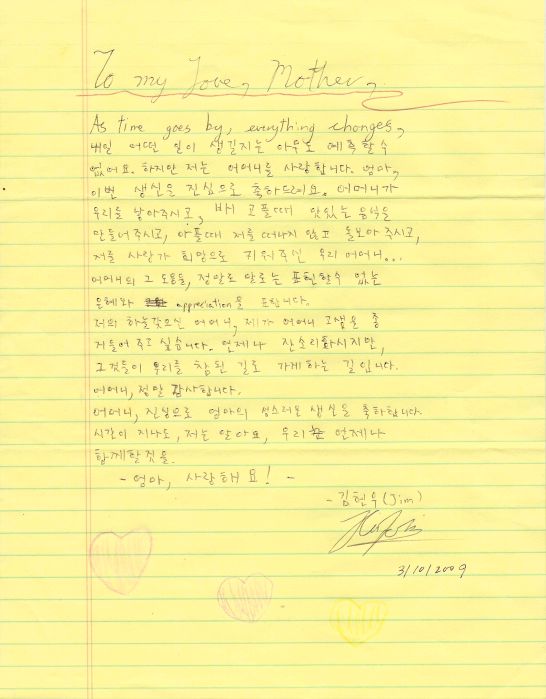 To my Love, Mother,
As time goes by, everything changes,
내일 어떤 일이 생길지는 아무도 예측할수
없어요. 하지만 저는 어머니를 사랑합니다. 엄마,
이번 생신을 진심으로 축하드려요. 어머니가
우리를 낳아주시고, 배 고플때 맛있는 음식을
만들어주시고, 아플때 저를 떠나지 않고 돌보아 주시고,
저를 사랑가 희망으로 키워주신 우리 어머니...
어머니의 그 도움들, 정말로 말로는 표현할수 없는
은혜와 appreciation을 표합니다.
저의 하늘같으신 어머니, 제가 어머니 고생을 좀
거들어 주고 싶습니다. 언제나 잔소리하시지만,
그것들이 우리를 참된 길로 가게하는 길입니다.
어머니, 정말 감사합니다.
어머니, 진심으로 엄마의 성스러운 생신을 축하합니다.
시간이 지나도, 저는 알아요, 우리 언제나
함께할것을.
- 엄마, 사랑해요! -
- 김현우 (Jim)
3/10/2009